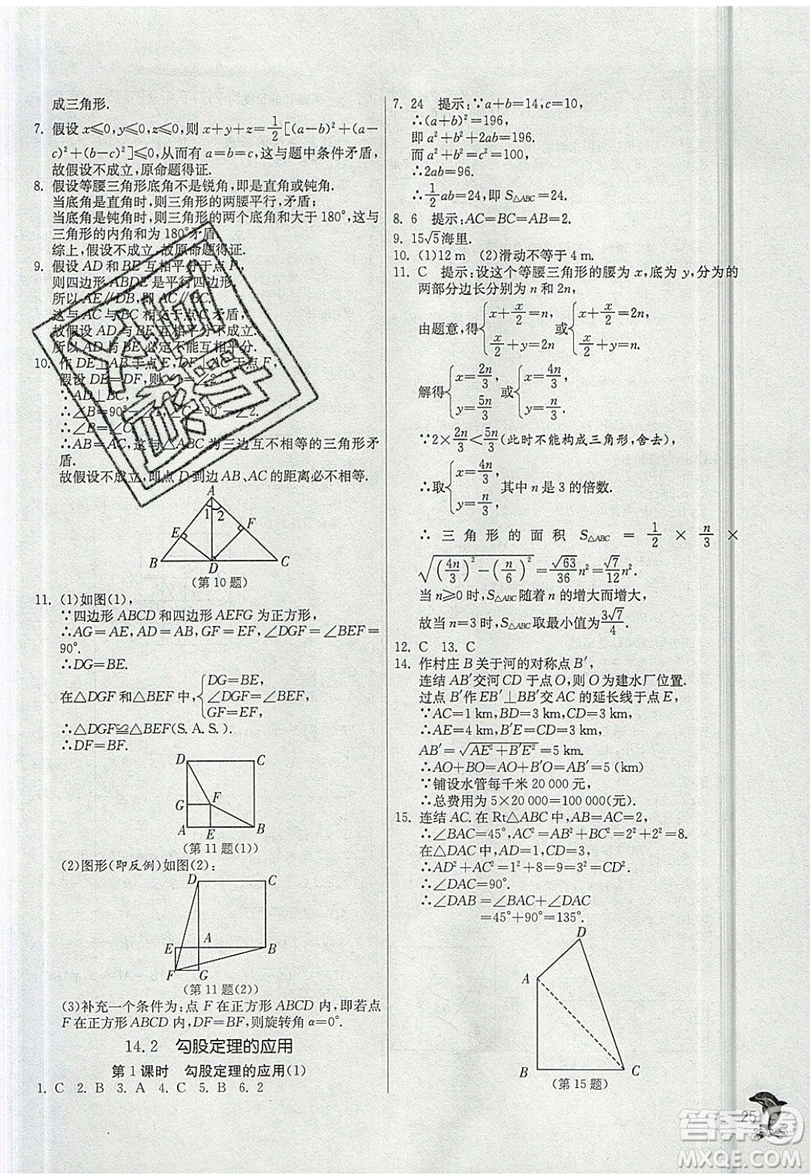 成三角形.
7. 假设 x≤0,y≤0,z≤0,则 x+y+z=1/2[(a-b)²+(a-
c)²+(b-c)²]≤0,从而有 a=b=c,这与题中条件矛盾,
故假设不成立,原命题得证.
8. 假设等腰三角形底角不是锐角,即是直角或钝角.
当底角是直角时,则三角形的两腰平行,矛盾;
当底角是钝角时,则三角形的两个底角和大于180°,这与
三角形的内角和为180°矛盾.
综上,假设不成立,故原命题得证.
9. 假设 AD 和 BE 互相平分于点 F,
则四边形 ABDE 是平行四边形.
所以 AE∥DB,即 AC∥DB,
这与 AC 与 DB 相交于点 C 矛盾.
故假设 AD 与 BE 互相平分不成立.
所以 AD 与 BE 必定不能互相平分.
10. 作 DE⊥AB 于点 E,DF⊥AC 于点 F,
假设 DE=DF,则∠1=∠2.
∵AD⊥BC,
∴∠B=90°-∠1,∠C=90°-∠2.
∴∠B=∠C.
∴AB=AC,这与△ABC 为三边互不相等的三角形矛
盾.
故假设不成立,即点 D 到边 AB、AC 的距离必不相等.
A
1 2
E F
B D C
(第 10 题)
11. (1)如图(1),
∵四边形 ABCD 和四边形 AEFG 为正方形,
∴AG=AE,AD=AB,GF=EF,∠DGF=∠BEF=
90°.
∴DG=BE.
在△DGF 和△BEF 中,{DG=BE, ∠DGF=∠BEF, GF=EF,
∴△DGF≌△BEF(S.A.S.).
∴DF=BF.
D C
G F
A E B
(第 11 题(1))
(2)图形(即反例)如图(2):
D C
E A B
F G
(第 11 题(2))
(3)补充一个条件为:点 F 在正方形 ABCD 内,即若点
F 在正方形 ABCD 内,DF=BF,则旋转角 α=0°.
14.2 勾股定理的应用
第 1 课时 勾股定理的应用(1)
1. C 2. B 3. A 4. C 5. B 6. 2
7. 24 提示:∵a+b=14,c=10,
∴(a+b)²=196,
即 a²+b²+2ab=196,
∴2ab=96.
∴1/2ab=24,即 S△ABC=24.
8. 6 提示:AC=BC=AB=2.
9. 15√5海里.
10. (1)12 m (2)滑动不等于 4 m.
11. C 提示:设这个等腰三角形的腰为 x,底为 y,分为的
两部分边长分别为 n 和 2n,
由题意,得{x+x/2=n, x/2+y=2n 或{x+x/2=2n, x/2+y=n,
解得{x=2n/3, y=5n/3 或{x=4n/3, y=n/3,
∵2×2n/3<5n/3(此时不能构成三角形,舍去),
∴取{x=4n/3, y=n/3, 其中 n 是 3 的倍数.
∴ 三角形的面积 S△ABC = 1/2 × n/3 ×
√((4n/3)²-(n/6)²)=√63/36n²=√7/12n².
当 n≥0 时,S△ABC随着 n 的增大而增大,
故当 n=3 时,S△ABC取最小值为3√7/4.
12. C 13. C
14. 作村庄 B 关于河的对称点 B′,
连结 AB′交河 CD 于点 O,则 O 为建水厂位置.
过点 B′作 EB′⊥BB′交 AC 的延长线于点 E,
∵AC=1 km,BD=3 km,CD=3 km,
∴AE=4 km,B′E=3 km,
AB′=√(AE²+B′E²)=5 km.
∵铺设水管每千米 20 000 元,
∴总费用为 5×20 000=100 000(元).
15. 连结 AC. 在 Rt△ABC 中,AB=AC=2,
∴∠BAC=45°,AC²=AB²+BC²=2²+2²=8.
在△DAC 中,
∴AD²+AC²=1+8=9=3²=CD².
∴∠DAC=90°.
∴∠DAB=∠BAC+∠DAC
=45°+90°=135°.
D
A
B C
(第 15 题)
25
答案圈
MXQE.COM